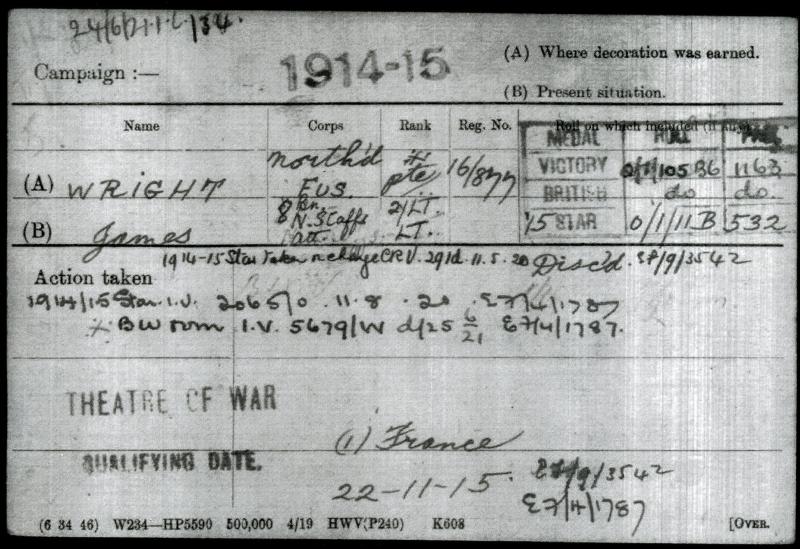 24/6/21.I.C/34.
Campaign :— 1914-15
(A) Where decoration was earned.
(B) Present situation.
Name Corps Rank Reg. No. Roll on which included (if any).
MEDAL ROLL PAGE
(A) WRIGHT North'd Fus. Pte 16/877
VICTORY 0/1/105 B6 1163
BRITISH do do.
(B) James 8 Bn. N. Staffs att. 2/LT. LT.
15 STAR 0/1/11 B 532
1914-15 Star taken on charge CRV. 291d. 11.5.20 Disc'd. EF/9/3542
Action taken
1914/15 Star I.V. 2065/0 11.8.20 E7/4/1787
BW I.V. 5679/W d/25 6/21 E7/4/1787.
THEATRE OF WAR
(1) France
QUALIFYING DATE.
22-11-15. EF/9/3542
E7/4/1787
(6 34 46) W234—HP5590 500,000 4/19 HWV(P240) K608 [OVER.